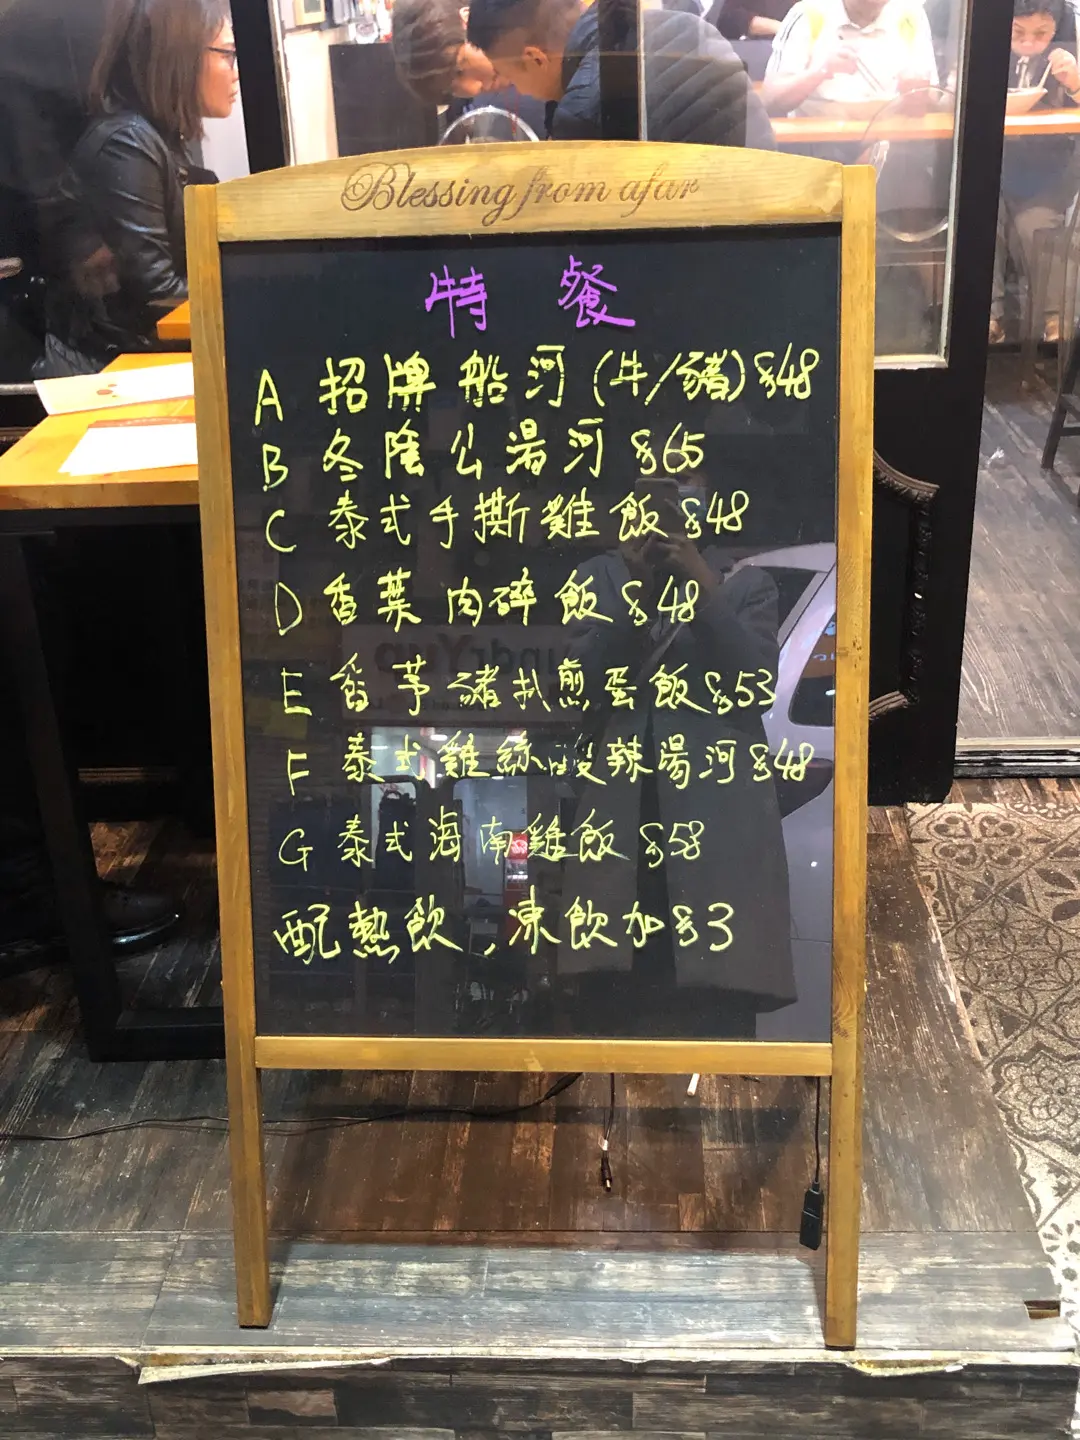 Blessing from afar
特餐
A 招牌船河(牛/豬)$48
B 冬陰公湯河 $65
C 泰式手撕雞飯 $48
D 香葉肉碎飯 $48
E 香芧豬扒煎蛋飯 $53
F 泰式雞絲酸辣湯河 $48
G 泰式海南雞飯 $58
配熱飲,凍飲加$3